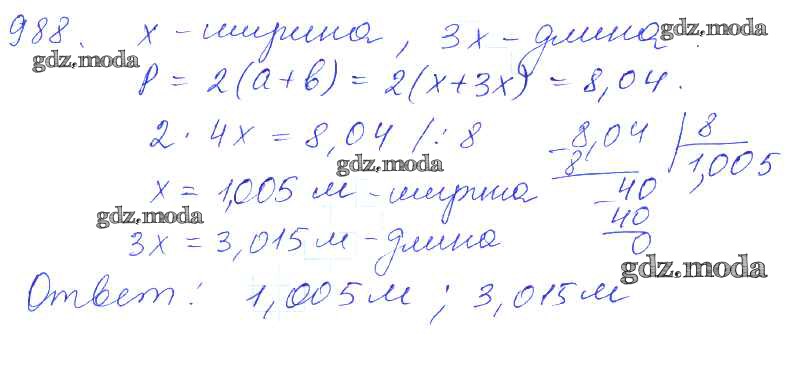 988. x - ширина, 3x - длина.
gdz.moda
gdz.moda
P = 2(a+b) = 2(x+3x) = 8,04.
2 · 4x = 8,04 /: 8
- 8,04 | 8
8 1,005
gdz.moda
x = 1,005 м - ширина
- 40
gdz.moda
40
3x = 3,015 м - длина
0
gdz.moda
Ответ: 1,005 м ; 3,015 м